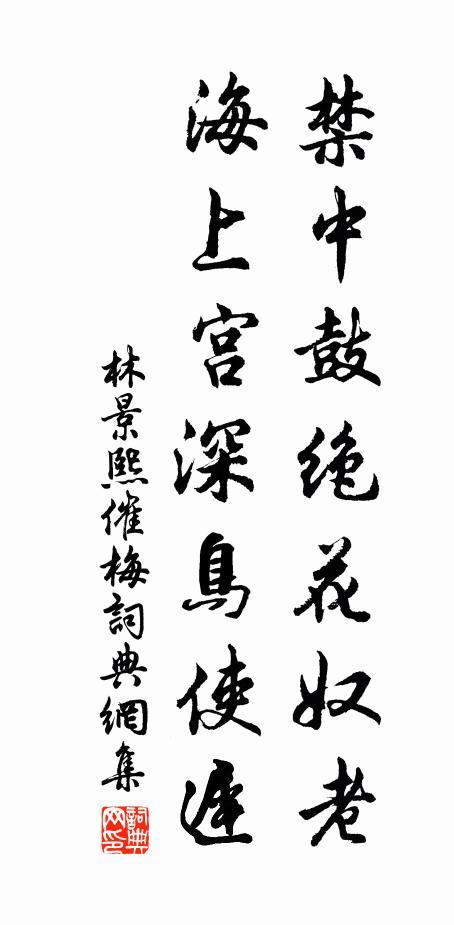 禁中鼓绝花奴老
海上宫深鸟使遲
林景熙催梅詞典網集
詞典网印